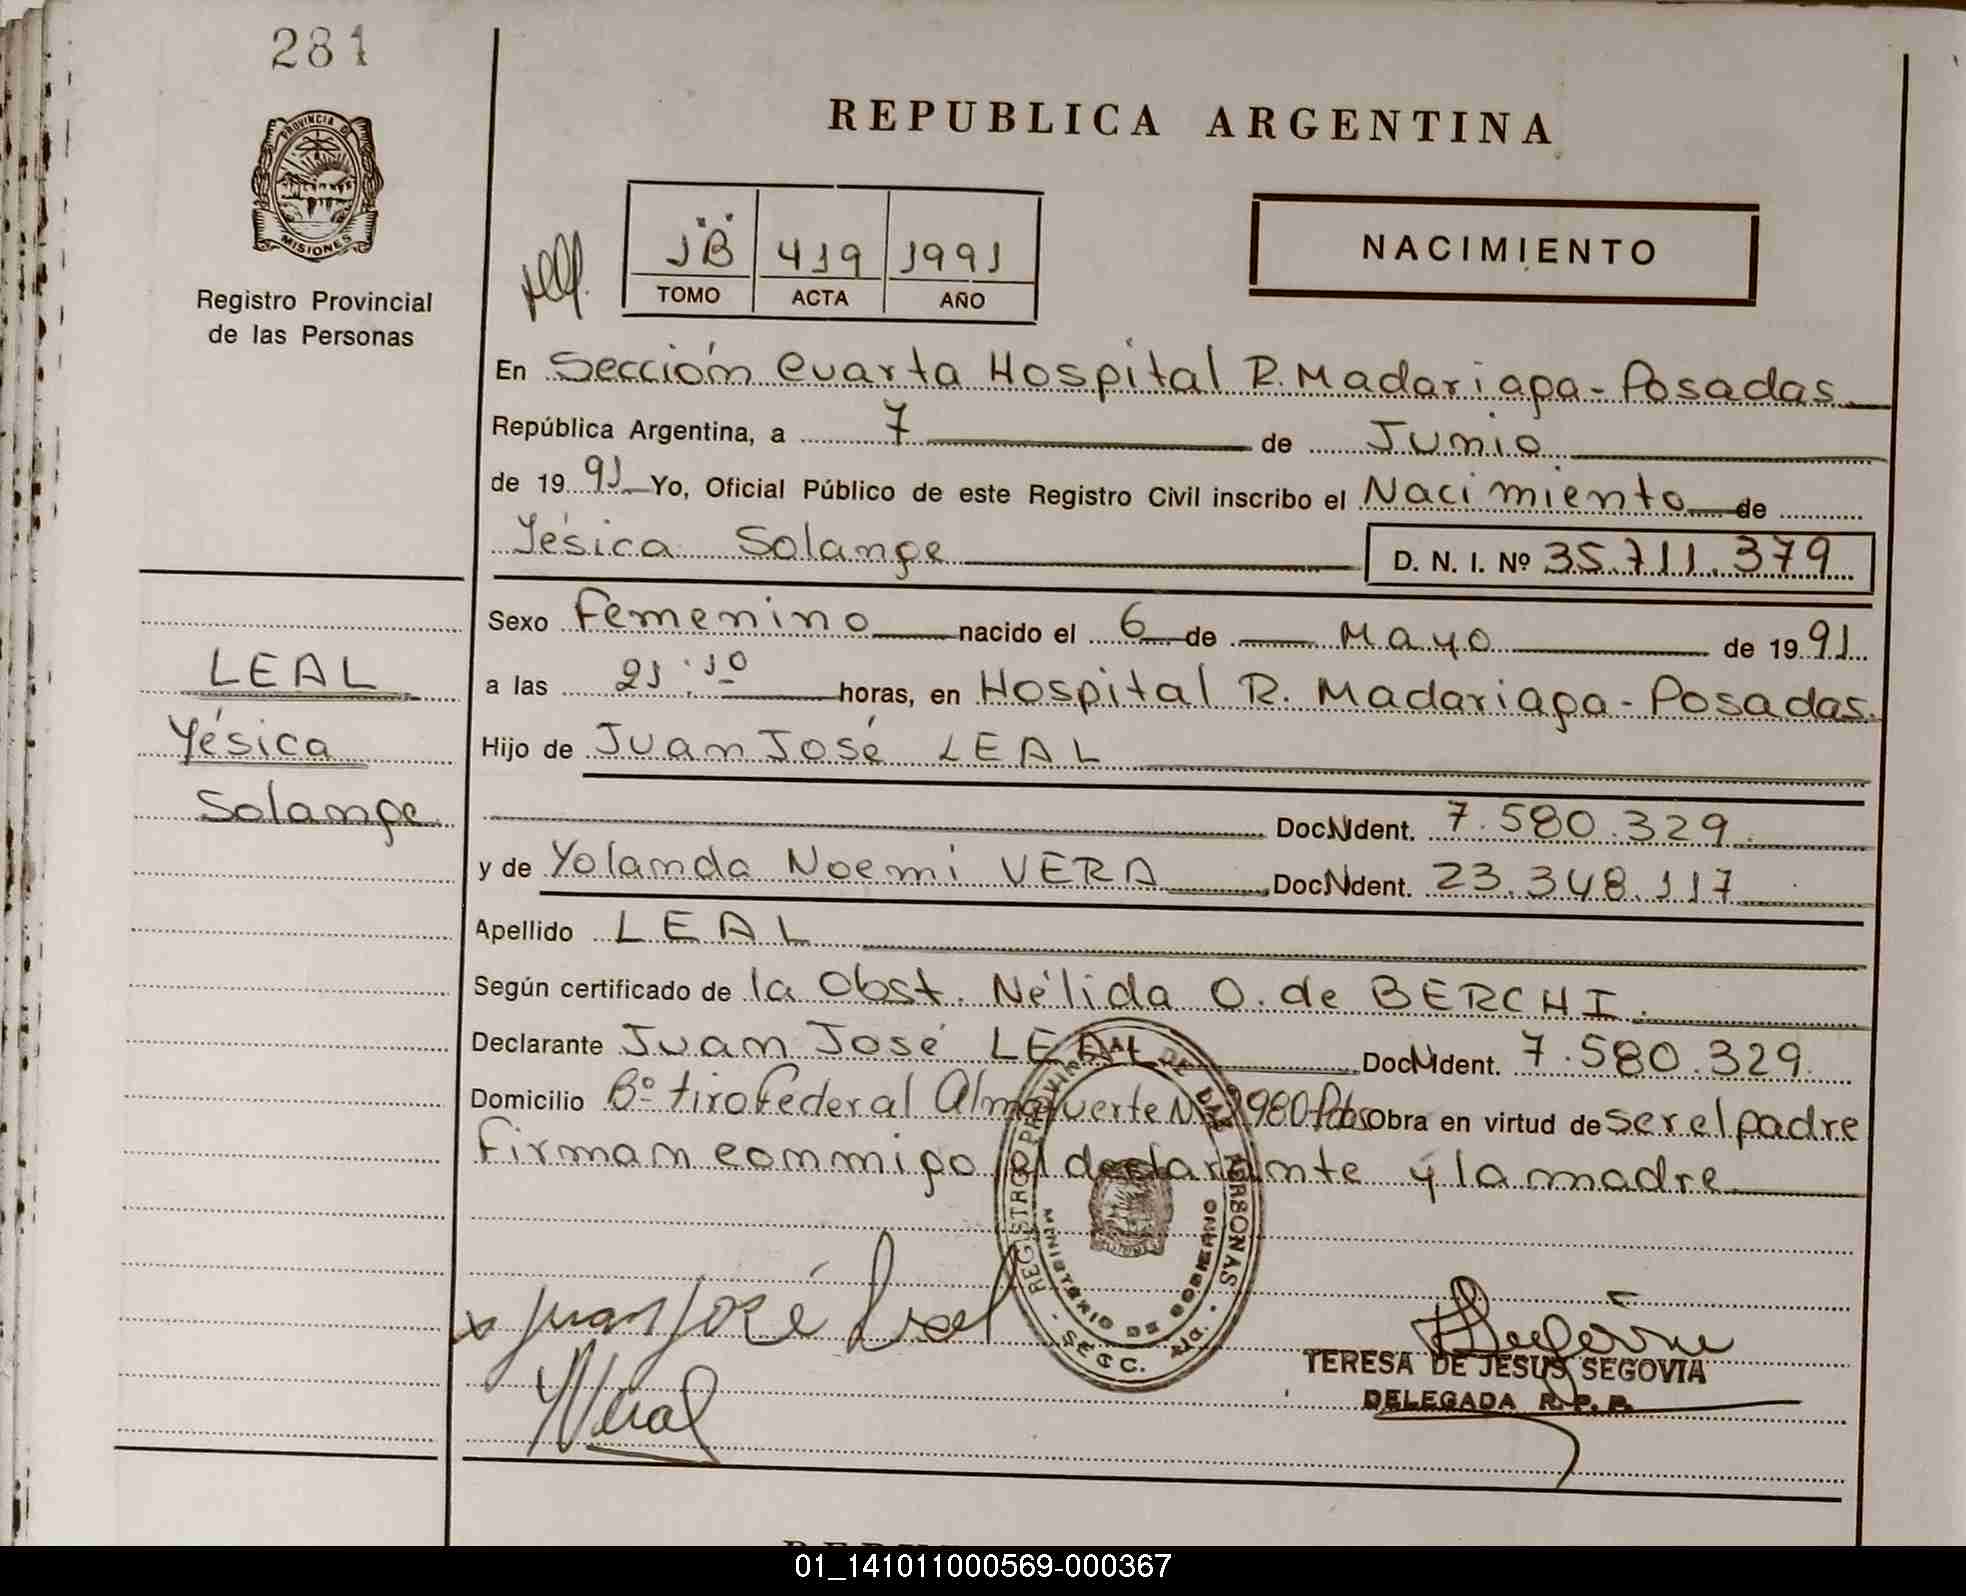 281
PROVINCIA DE
MISIONES
Registro Provincial
de las Personas
REPUBLICA ARGENTINA
"1B" 419 1991
TOMO ACTA AÑO
NACIMIENTO
En Sección Cuarta Hospital R. Madariaga - Posadas
República Argentina, a 7 de Junio
de 1991 Yo, Oficial Público de este Registro Civil inscribo el Nacimiento de
Yésica Solange D. N. I. Nº 35.711.379
Sexo Femenino nacido el 6 de Mayo de 1991
a las 21:10 horas, en Hospital R. Madariaga - Posadas.
Hijo de Juan José LEAL
Doc. Ident. 7.580.329
y de Yolanda Noemí VERA Doc. Ident. 23.348.117
Apellido LEAL
Según certificado de la Obst. Nélida O. de BERCHI.
Declarante Juan José LEAL Doc. Ident. 7.580.329
Domicilio Bº tiro Federal Almafuerte Nº 2980 Pdas Obra en virtud de ser el padre
Firman conmigo el declarante y la madre
LEAL
Yésica
Solange
REGISTRO PROVINCIAL DE LAS PERSONAS
MINISTERIO DE GOBIERNO
SECC. 4ta.
Juan José Leal
TERESA DE JESUS SEGOVIA
DELEGADA R. P. P.
01_141011000569-000367